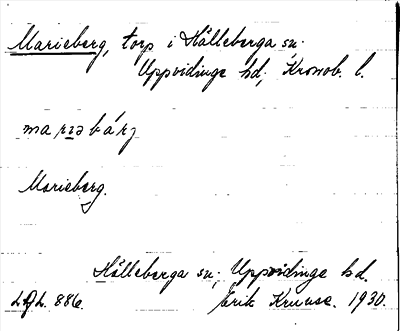 Marieberg, torp i Hälleberga sn.
Uppvidinge hd, Kronob. l.
Marieberg.
Hälleberga sn; Uppvidinge hd.
LAL. 886. Erik Kruuse. 1930.